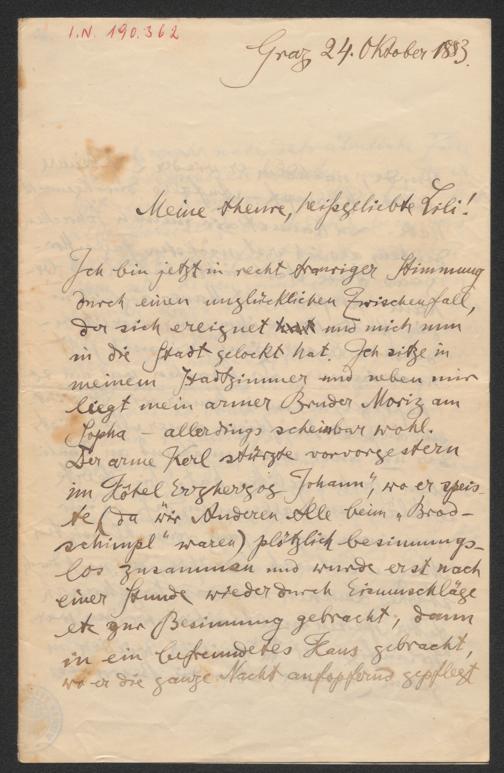 I.N. 190.362
Graz 24. Oktober 1883.
Meine theure, heißgeliebte Lili!
Ich bin jetzt in recht trauriger Stimmung
durch einen unglücklichen Zwischenfall,
der sich ereignet hat und mich nun
in die Stadt gelockt hat. Ich sitze in
meinem Stadtzimmer und neben mir
liegt mein armer Bruder Moriz am
Sopha – allerdings scheinbar wohl.
Der arme Kerl stürzte vorvorgestern
im Hôtel Erzherzog Johann", wo er speis-
te (da wir Anderen Alle beim „Brod-
schimpl" waren) plötzlich besinnungs-
los zusammen und wurde erst nach
einer Stunde wieder durch Eisumschläge
etc zur Besinnung gebracht, dann
in ein befreundetes Haus gebracht,
wo er die ganze Nacht aufopfernd gepflegt